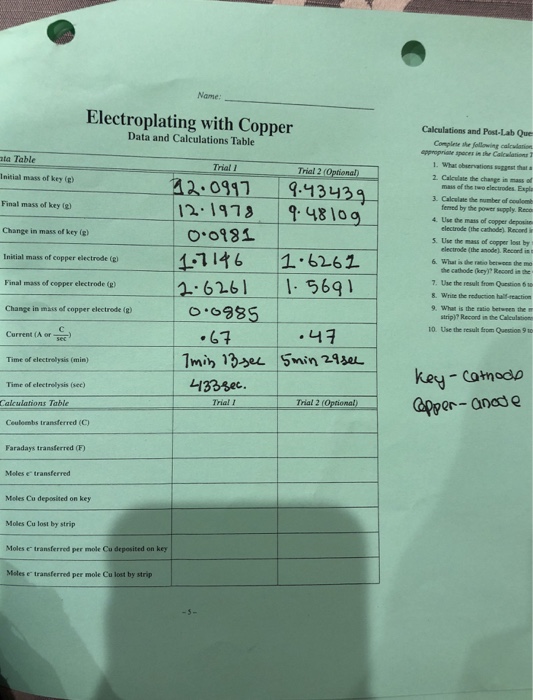 Name:
Electroplating with Copper
Data and Calculations Table
ata Table
Trial 1
Trial 2 (Optional)
Initial mass of key (g)
12.0997
9.4343g
Final mass of key (g)
12.1978
9.4810g
Change in mass of key (g)
0.0981
Initial mass of copper electrode (g)
1.7146
1.6261
Final mass of copper electrode (g)
1.6261
1.5691
Change in mass of copper electrode (g)
0.0885
Current (A or C/sec)
.67
.47
Time of electrolysis (min)
7min 13sec
5min 29sec
Time of electrolysis (sec)
433sec.
Calculations Table
Trial 1
Trial 2 (Optional)
Coulombs transferred (C)
Faradays transferred (F)
Moles e⁻ transferred
Moles Cu deposited on key
Moles Cu lost by strip
Moles e⁻ transferred per mole Cu deposited on key
Moles e⁻ transferred per mole Cu lost by strip
-5-
Calculations and Post-Lab Que
Complete the following calculation
appropriate spaces in the Calculations T
1. What observations suggest that a
2. Calculate the change in mass of
mass of the two electrodes. Expla
3. Calculate the number of coulomb
ferred by the power supply. Reco
4. Use the mass of copper deposite
electrode (the cathode). Record i
5. Use the mass of copper lost by
electrode (the anode). Record in
6. What is the ratio between the mo
the cathode (key)? Record in the
7. Use the result from Question 6 to
8. Write the reduction half-reaction
9. What is the ratio between the m
strip)? Record in the Calculation
10. Use the result from Question 9 to
Key - Cathode
Copper - anode